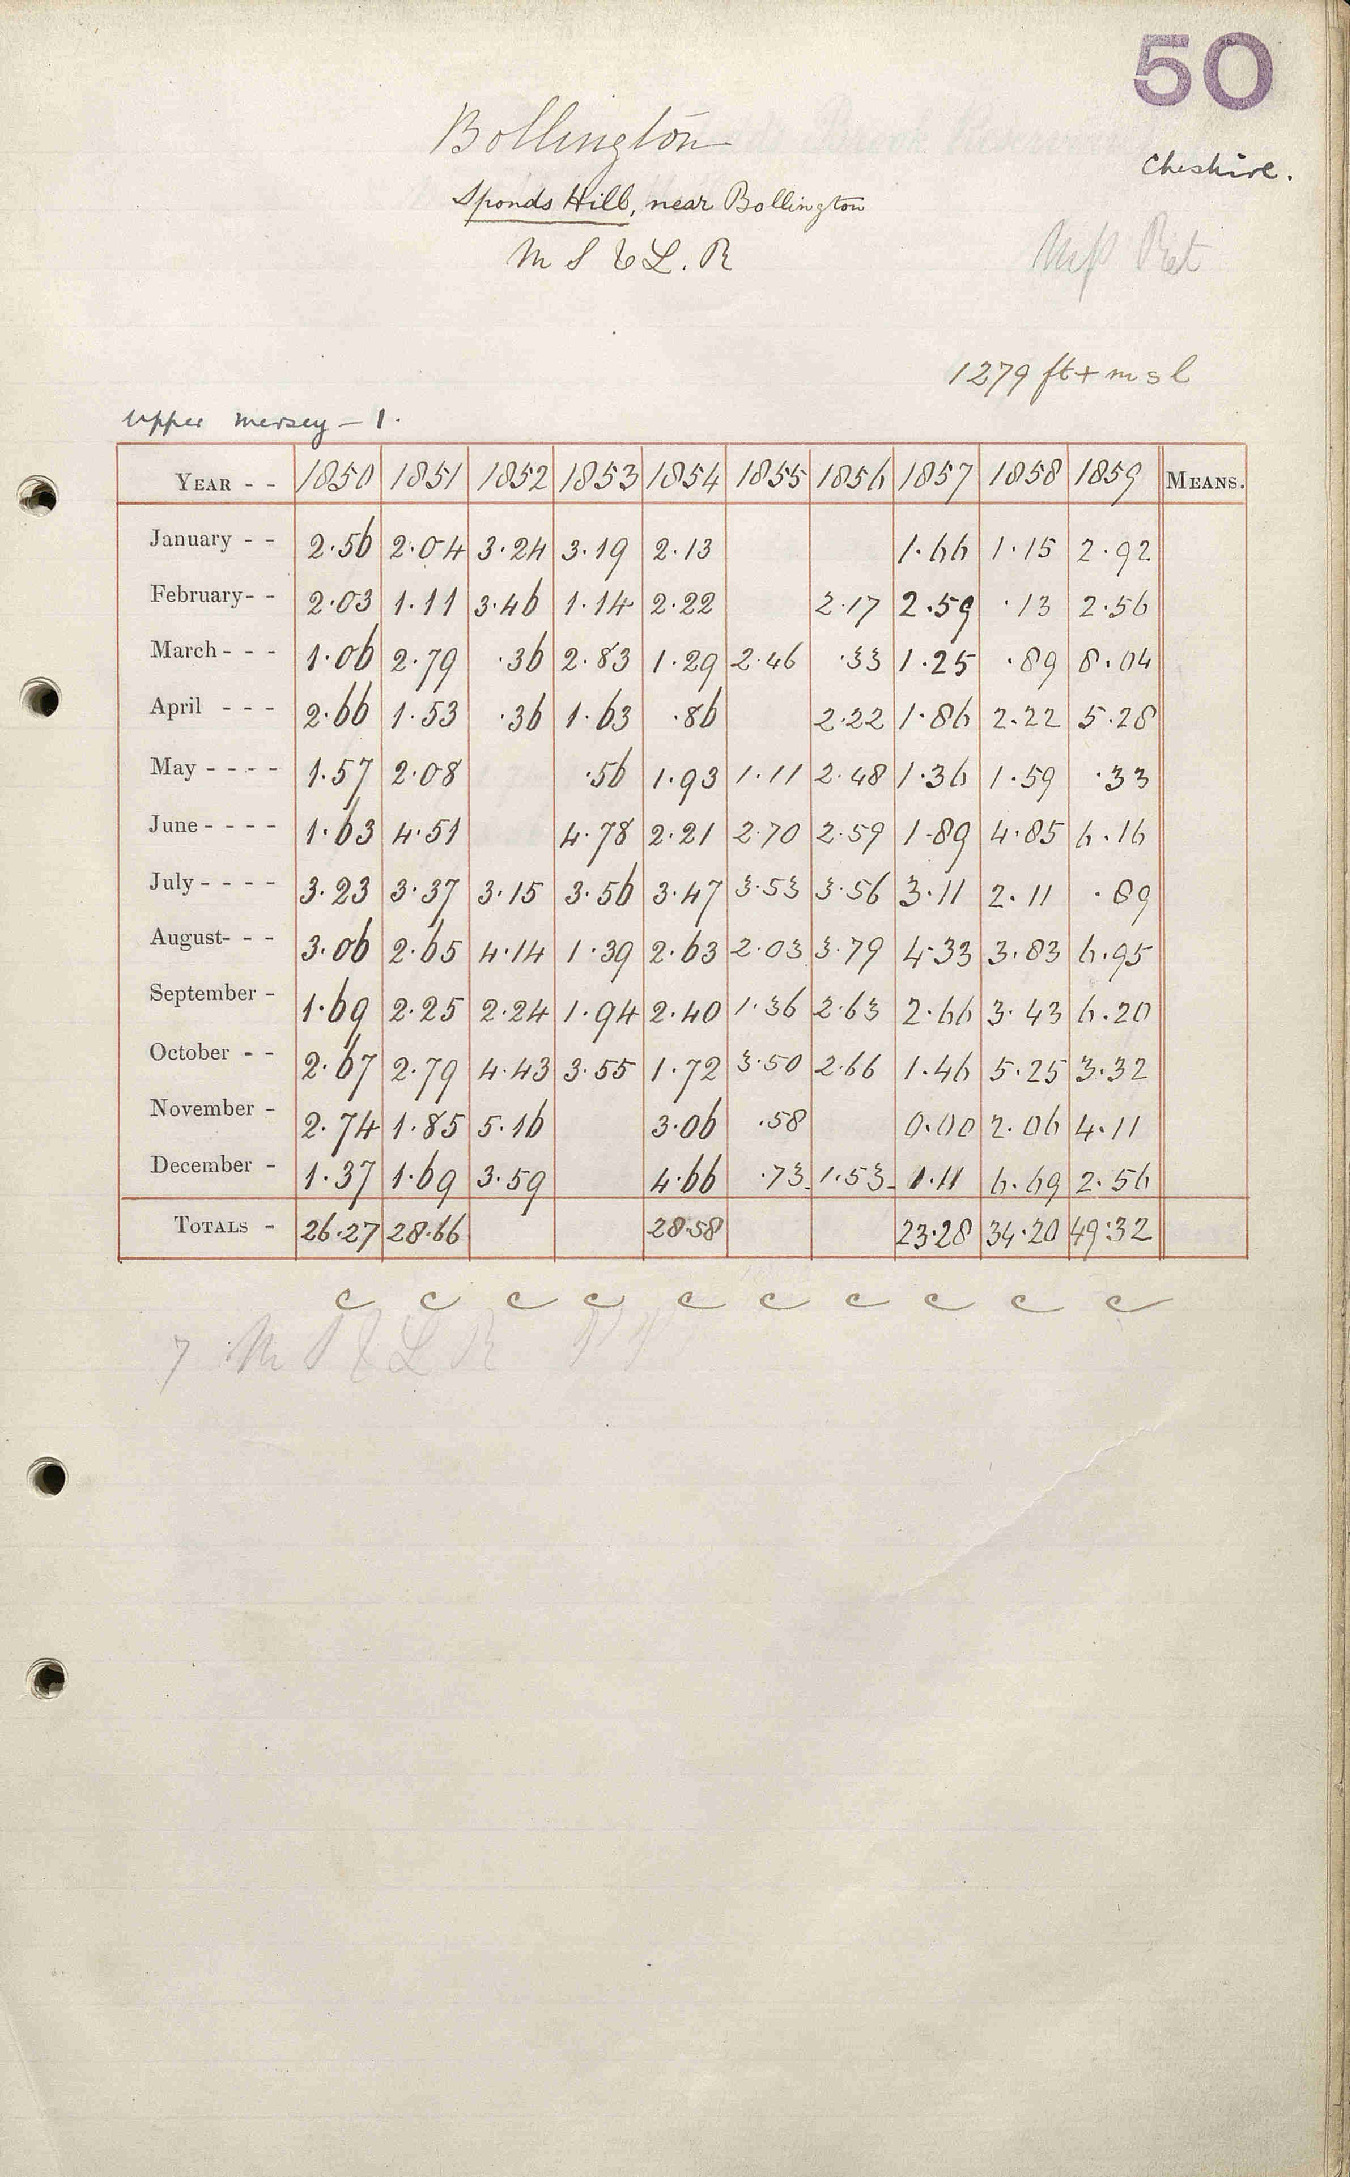 50
Bollington
Cheshire.
Sponds Hill, near Bollington
M S & L. R
1279 ft + m s l
Upper Mersey - 1.
YEAR - - 1850 1851 1852 1853 1854 1855 1856 1857 1858 1859 MEANS.
January - - 2.56 2.04 3.24 3.19 2.13 1.66 1.15 2.92
February - - 2.03 1.11 3.46 1.14 2.22 2.17 2.59 .13 2.56
March - - - 1.06 2.79 .36 2.83 1.29 2.46 .33 1.25 .89 8.04
April - - - 2.66 1.53 .36 1.63 .86 2.22 1.86 2.22 5.28
May - - - - 1.57 2.08 .56 1.93 1.11 2.48 1.36 1.59 .33
June - - - - 1.63 4.51 4.78 2.21 2.70 2.59 1.89 4.85 6.16
July - - - - 3.23 3.37 3.15 3.56 3.47 3.53 3.56 3.11 2.11 .89
August - - - 3.06 2.65 4.14 1.39 2.63 2.03 3.79 4.33 3.83 6.95
September - 1.69 2.25 2.24 1.94 2.40 1.36 2.63 2.66 3.43 6.20
October - - 2.67 2.79 4.43 3.55 1.72 3.50 2.66 1.46 5.25 3.32
November - 2.74 1.85 5.16 3.06 .58 0.00 2.06 4.11
December - 1.37 1.69 3.59 4.66 .73 1.53 1.11 6.69 2.56
TOTALS - 26.27 28.66 28.58 23.28 34.20 49.32
c c c c c c c c c c
7 M S & L R